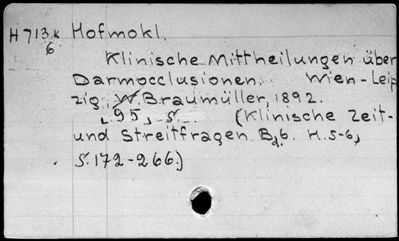 H713k Hofmokl.
6
Klinische Mittheilungen über
Darmocclusionen. Wien-Leip
zig, W. Braumüller, 1892.
95, S. (Klinische Zeit-
und Streitfragen. Bd6. H.5-6,
S.172-266.)